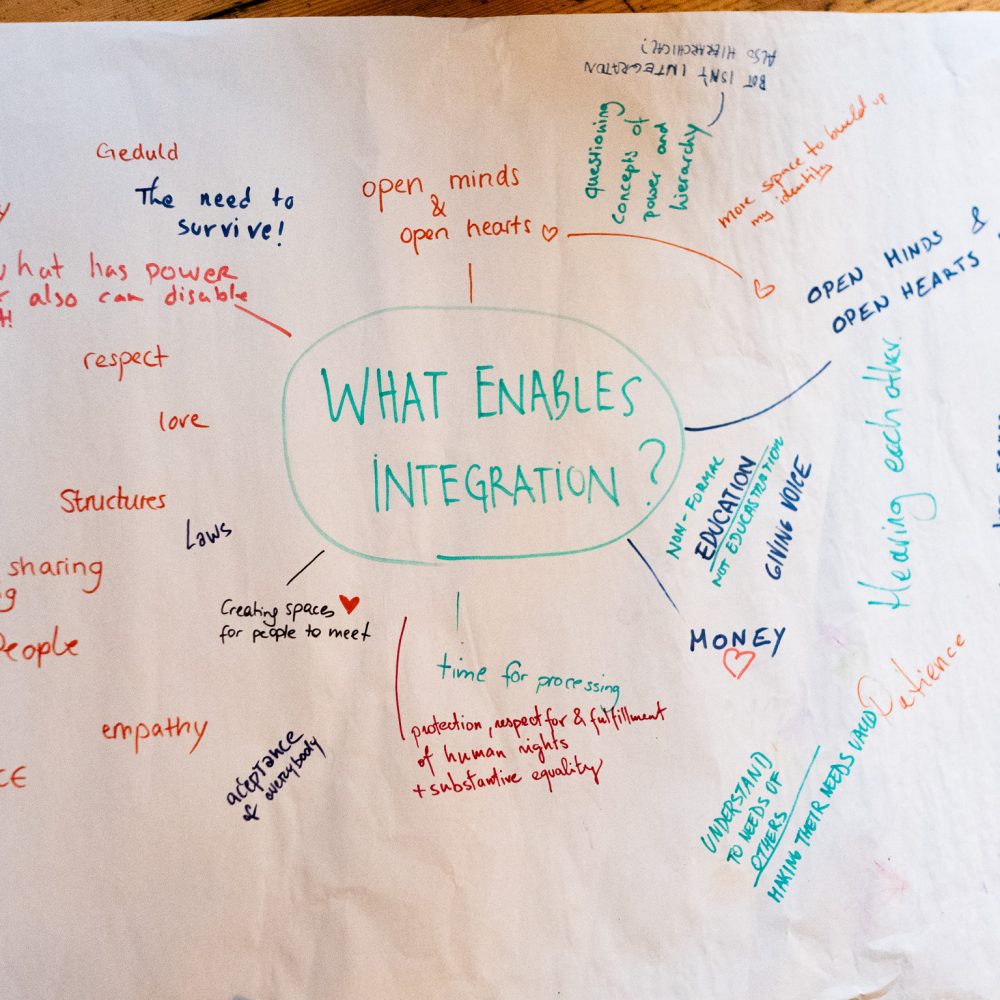 BOT ISN'T INTEGRATION
ALSO HIERARCHICAL?
questioning
concepts of
power and
hierarchy
more space to build up
my identity
Geduld
The need to
survive!
open minds
&
open hearts ♡
OPEN MINDS &
OPEN HEARTS
what has power
also can disable
respect
love
Structures
Laws
sharing
People
empathy
WHAT ENABLES
INTEGRATION?
Hearing each other
NON-FORMAL
EDUCATION
NOT EDUCASTRATION
GIVING VOICE
MONEY
Creating spaces ♥
for people to meet
time for processing
protection, respect for & fulfillment
of human rights
+ substantive equality
acceptance
of everybody
Patience
UNDERSTAND
TO NEEDS OF
OTHERS
MAKING THEIR NEEDS VALID